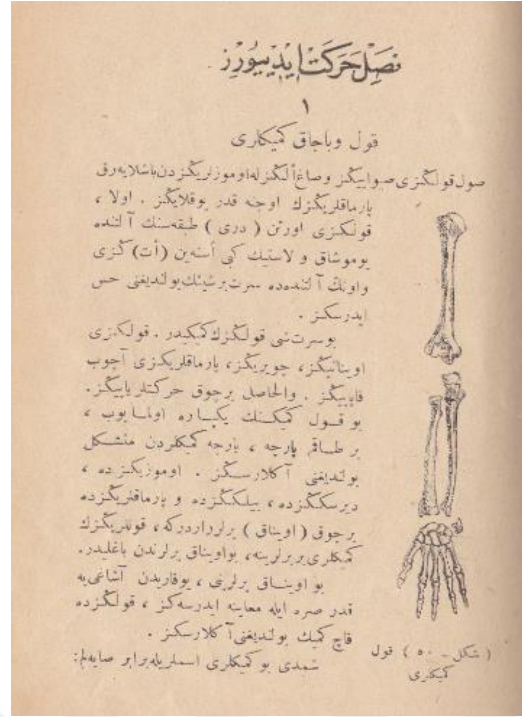 نصل حركت ايدييورز
١
قول و باجاق كميكلرى
صول قولڭزى صوايڭز و صاغ ألڭزله اوموزلريڭزدن باشلايه رق
پارماقلريڭزك اوجنه قدر يوقلايڭز . اولا ،
قولڭزى اورتن ( درى ) طبقه سنك آلتنده
يوموشاق و لاستيك كبى أسنه ين ( أت ) ڭزى
و اونڭ آلتنده ده سرت برشيئك بولنديغنى حس
ايدرسڭز .
بو سرت شى قولڭزك كميكيدر . قولڭزى
اويناتيڭز ، چويريڭز ، پارماقلريڭزى آچوب
قاپييڭز . والحاصل برچوق حركتلر ياپيڭز .
بو قول كميكنك يكپاره اولمايوب ،
بر طاقم پارچه ، پارچه كميكلردن متشكل
بولنديغنى آڭلارسڭز . اوموزيڭزده ،
ديرسكڭزده ، بيلكڭزده و پارماقلريڭزده
برچوق ( اويناق ) يرلر واردركه ، قوللريڭزك
كميكلرى بربرلرينه ، بو اويناق يرلرندن باغليدر .
بو اويناق يرلرنى ، يوقاريدن آشاغى يه
قدر صره ايله معاينه ايدرسه كز ، قولڭزده
قاچ كميك بولنديغنى آڭلارسڭز .
شمدى بو كميكلرى اسملريله برابر صايه لم :
( شكل - ٥٠ ) قول
كميكلرى